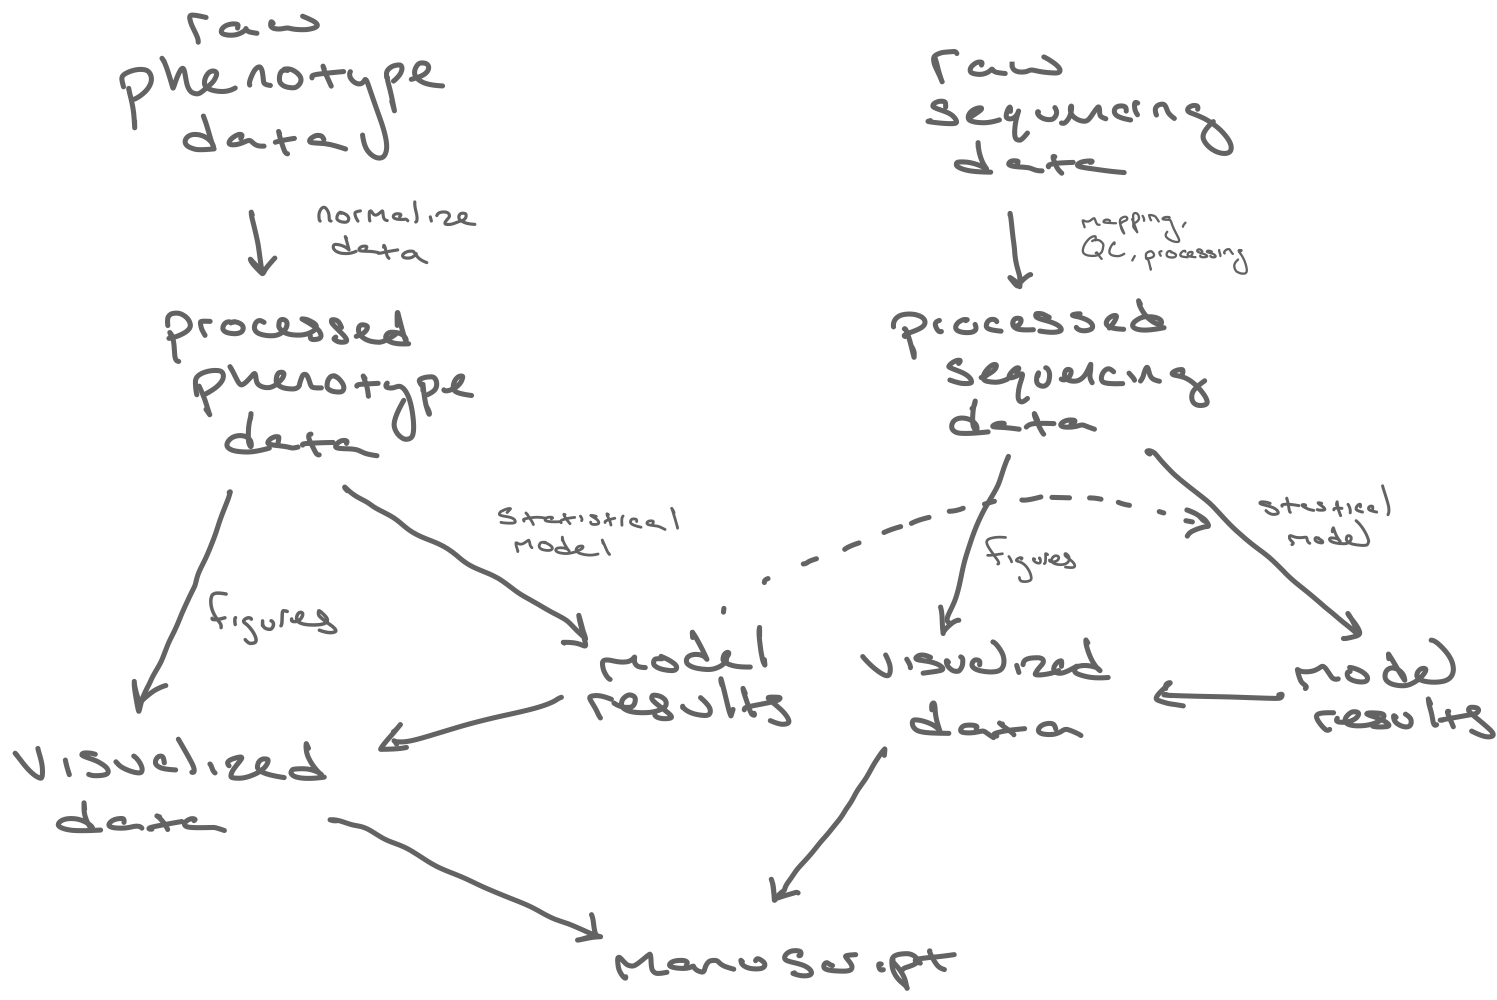 raw
phenotype
data
normalize
data
processed
phenotype
data
statistical
model
figures
model
results
visualized
data
raw
sequencing
data
mapping,
QC, processing
processed
sequencing
data
stastical
model
figures
visualized
data
model
results
manuscript